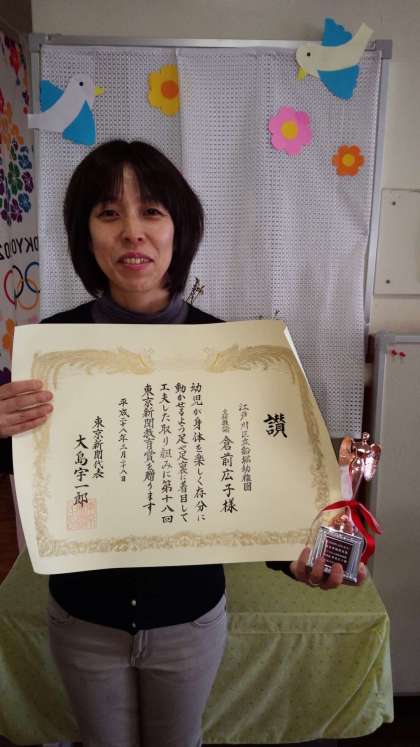 讃
江戸川区立船堀幼稚園
主任教諭 倉前広子様
幼児が身体を楽しく存分に
動かせるよう足や足裏に着目して
工夫した取り組みに第十八回
東京新聞教育賞を贈ります
平成二十八年二月二十八日
東京新聞代表
大島宇一郎